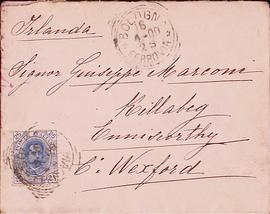 Irlanda
BOLOGN
6
4-00
2 S
FERROVIA
Signor Giuseppe Marconi
Killabeg
Enniscorthy
Co Wexford